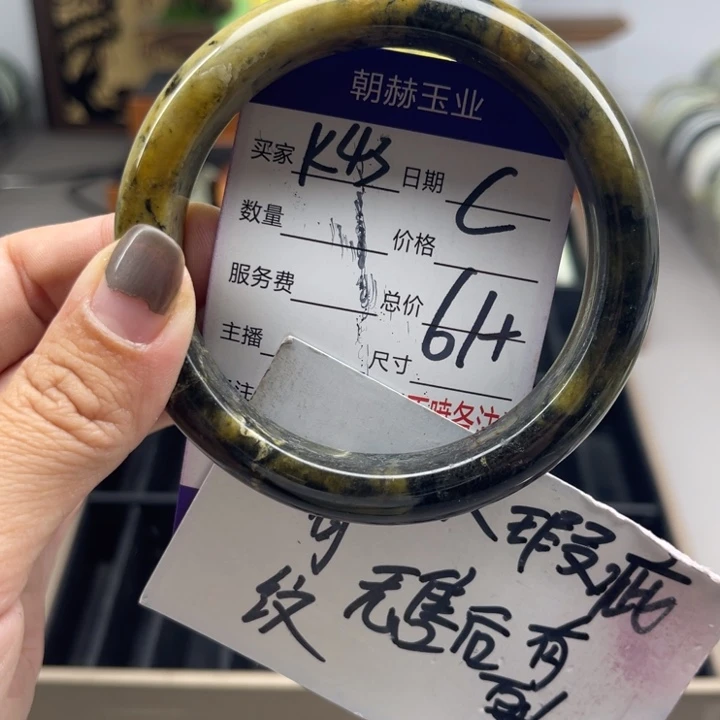 朝赫玉业
买家 K43 日期 C
数量 价格
服务费 总价 61+
主播 尺寸
瑕疵
纹 无售后 有